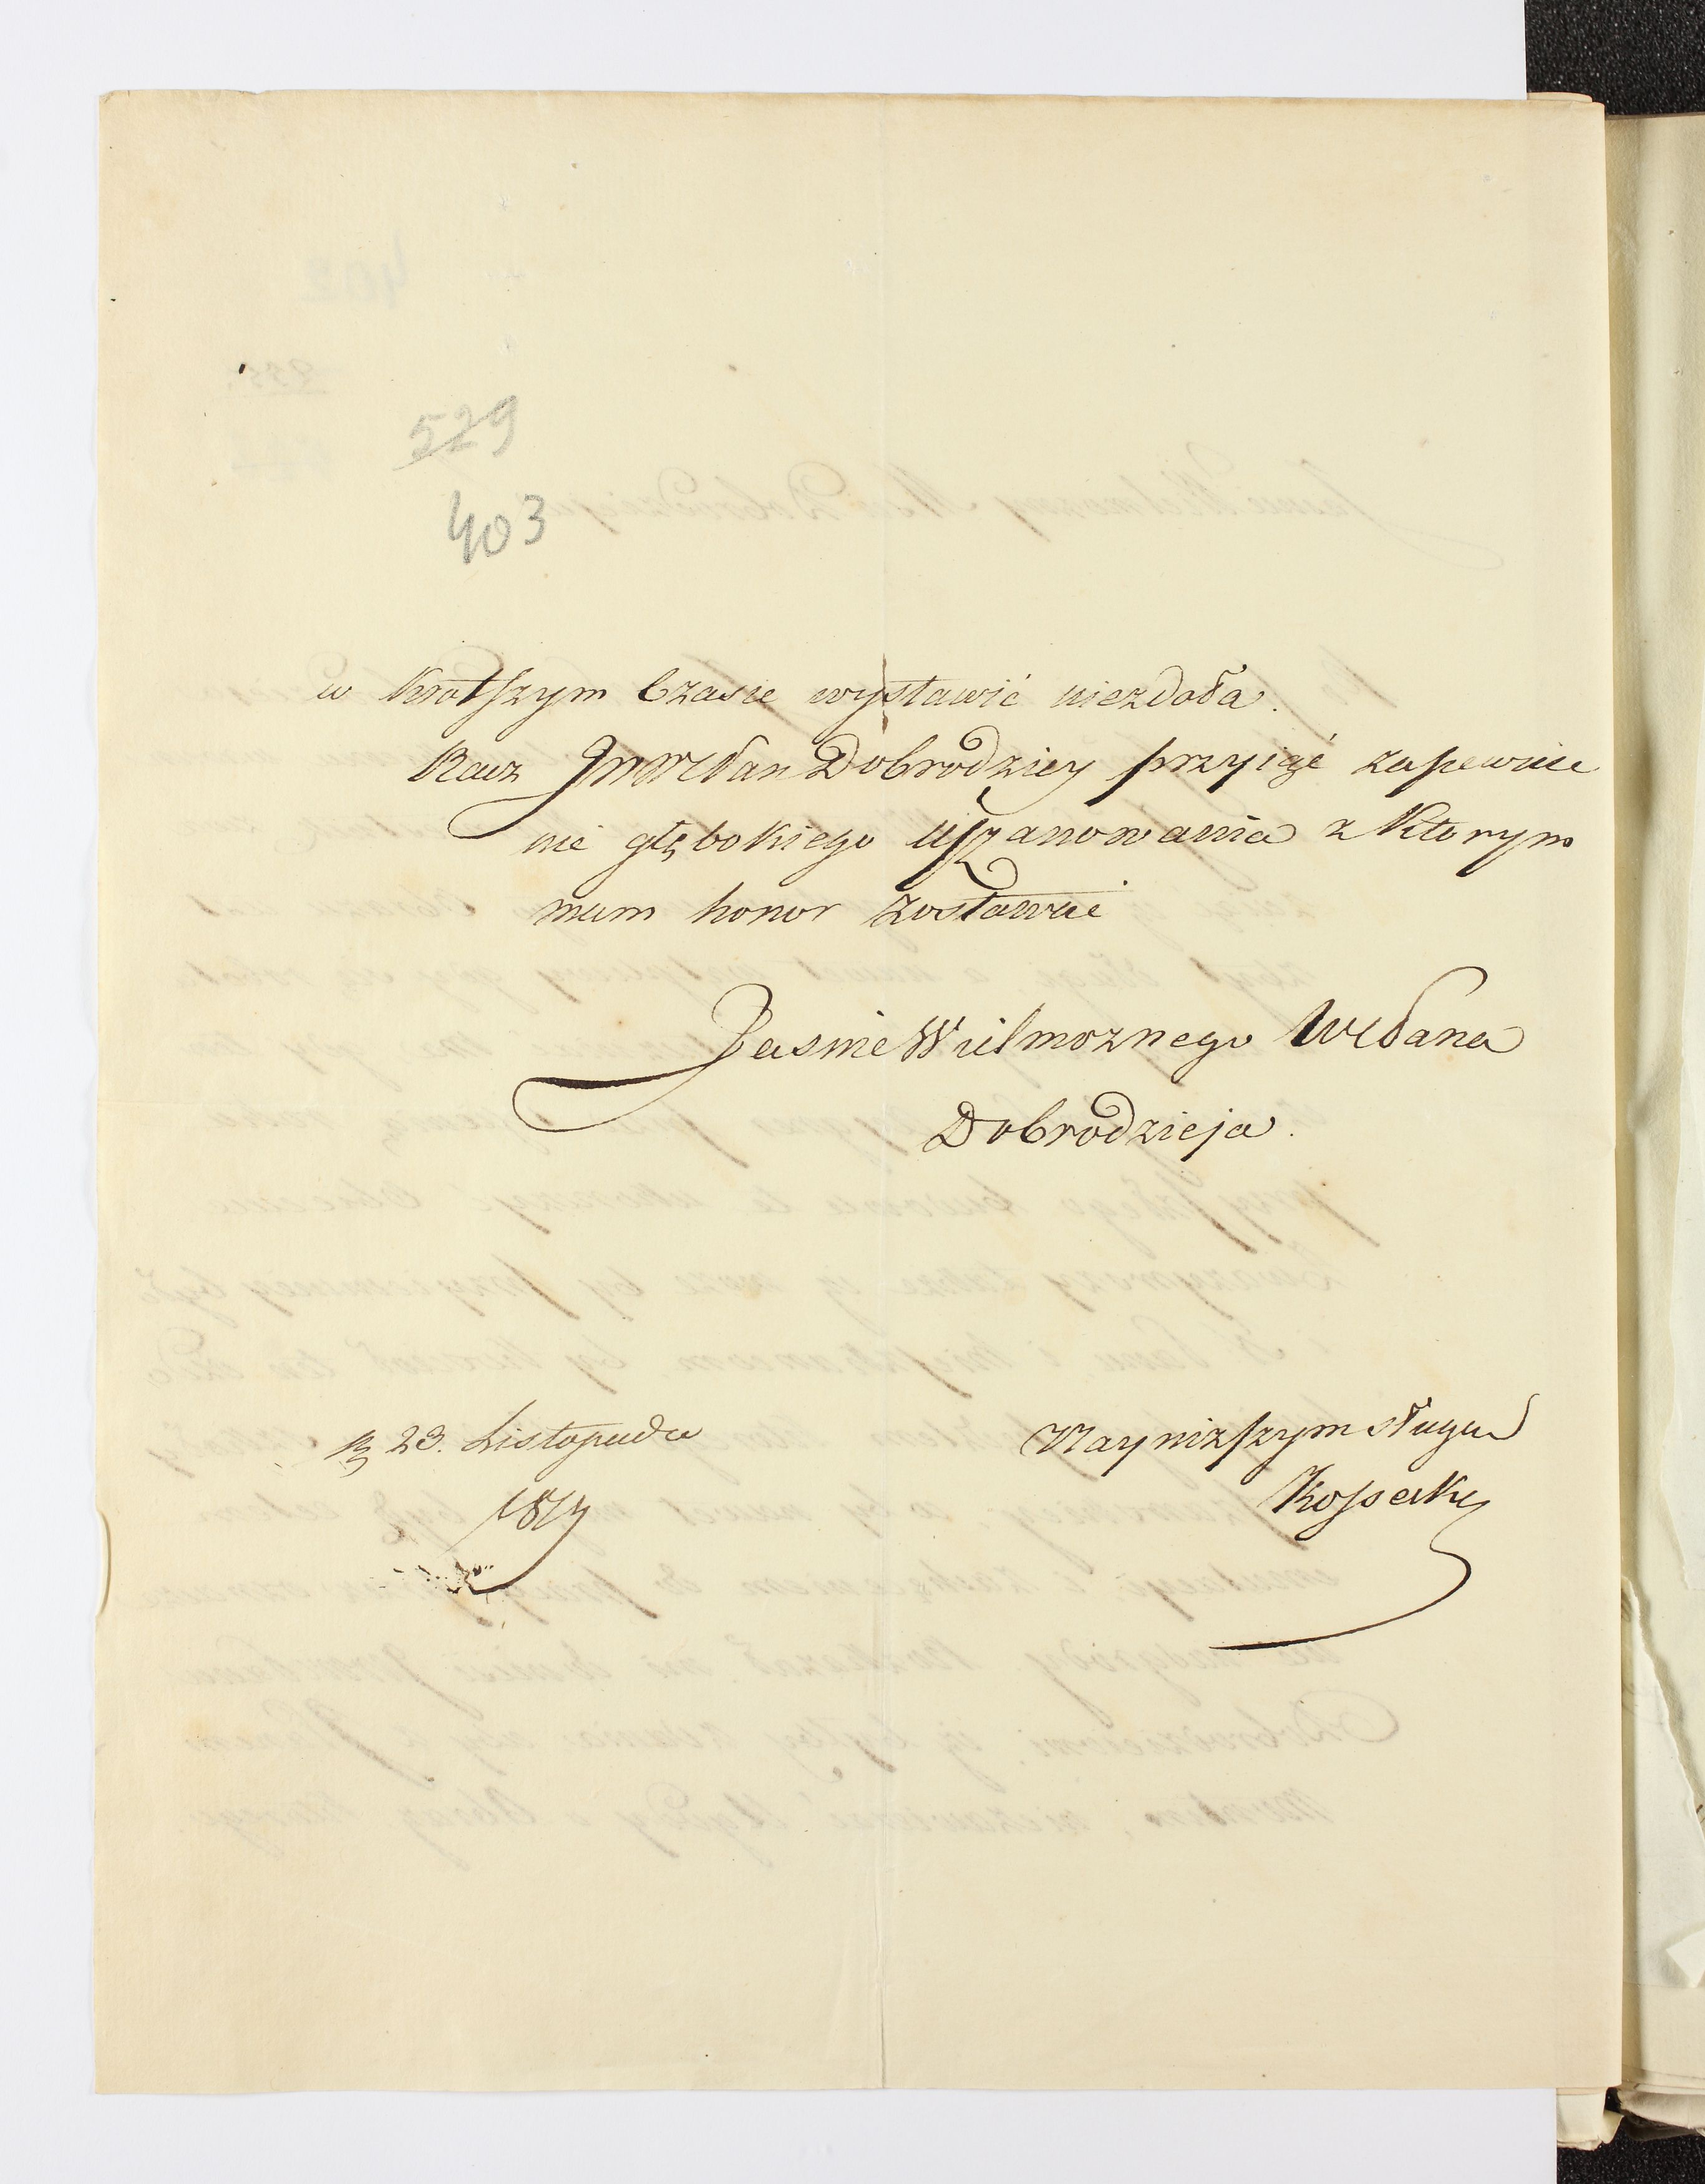 529
403
w krotszym Czasie wystawić niezdoła.
Racz JWWPan Dobrodziey przyiąć zapewnie
nie głębokiego uszanowania z ktorym
mam honor zostawać
Jasnie Wielmoznego WPana
Dobrodzieja.
Nayniższym sługą
D 23. Listopada
1817